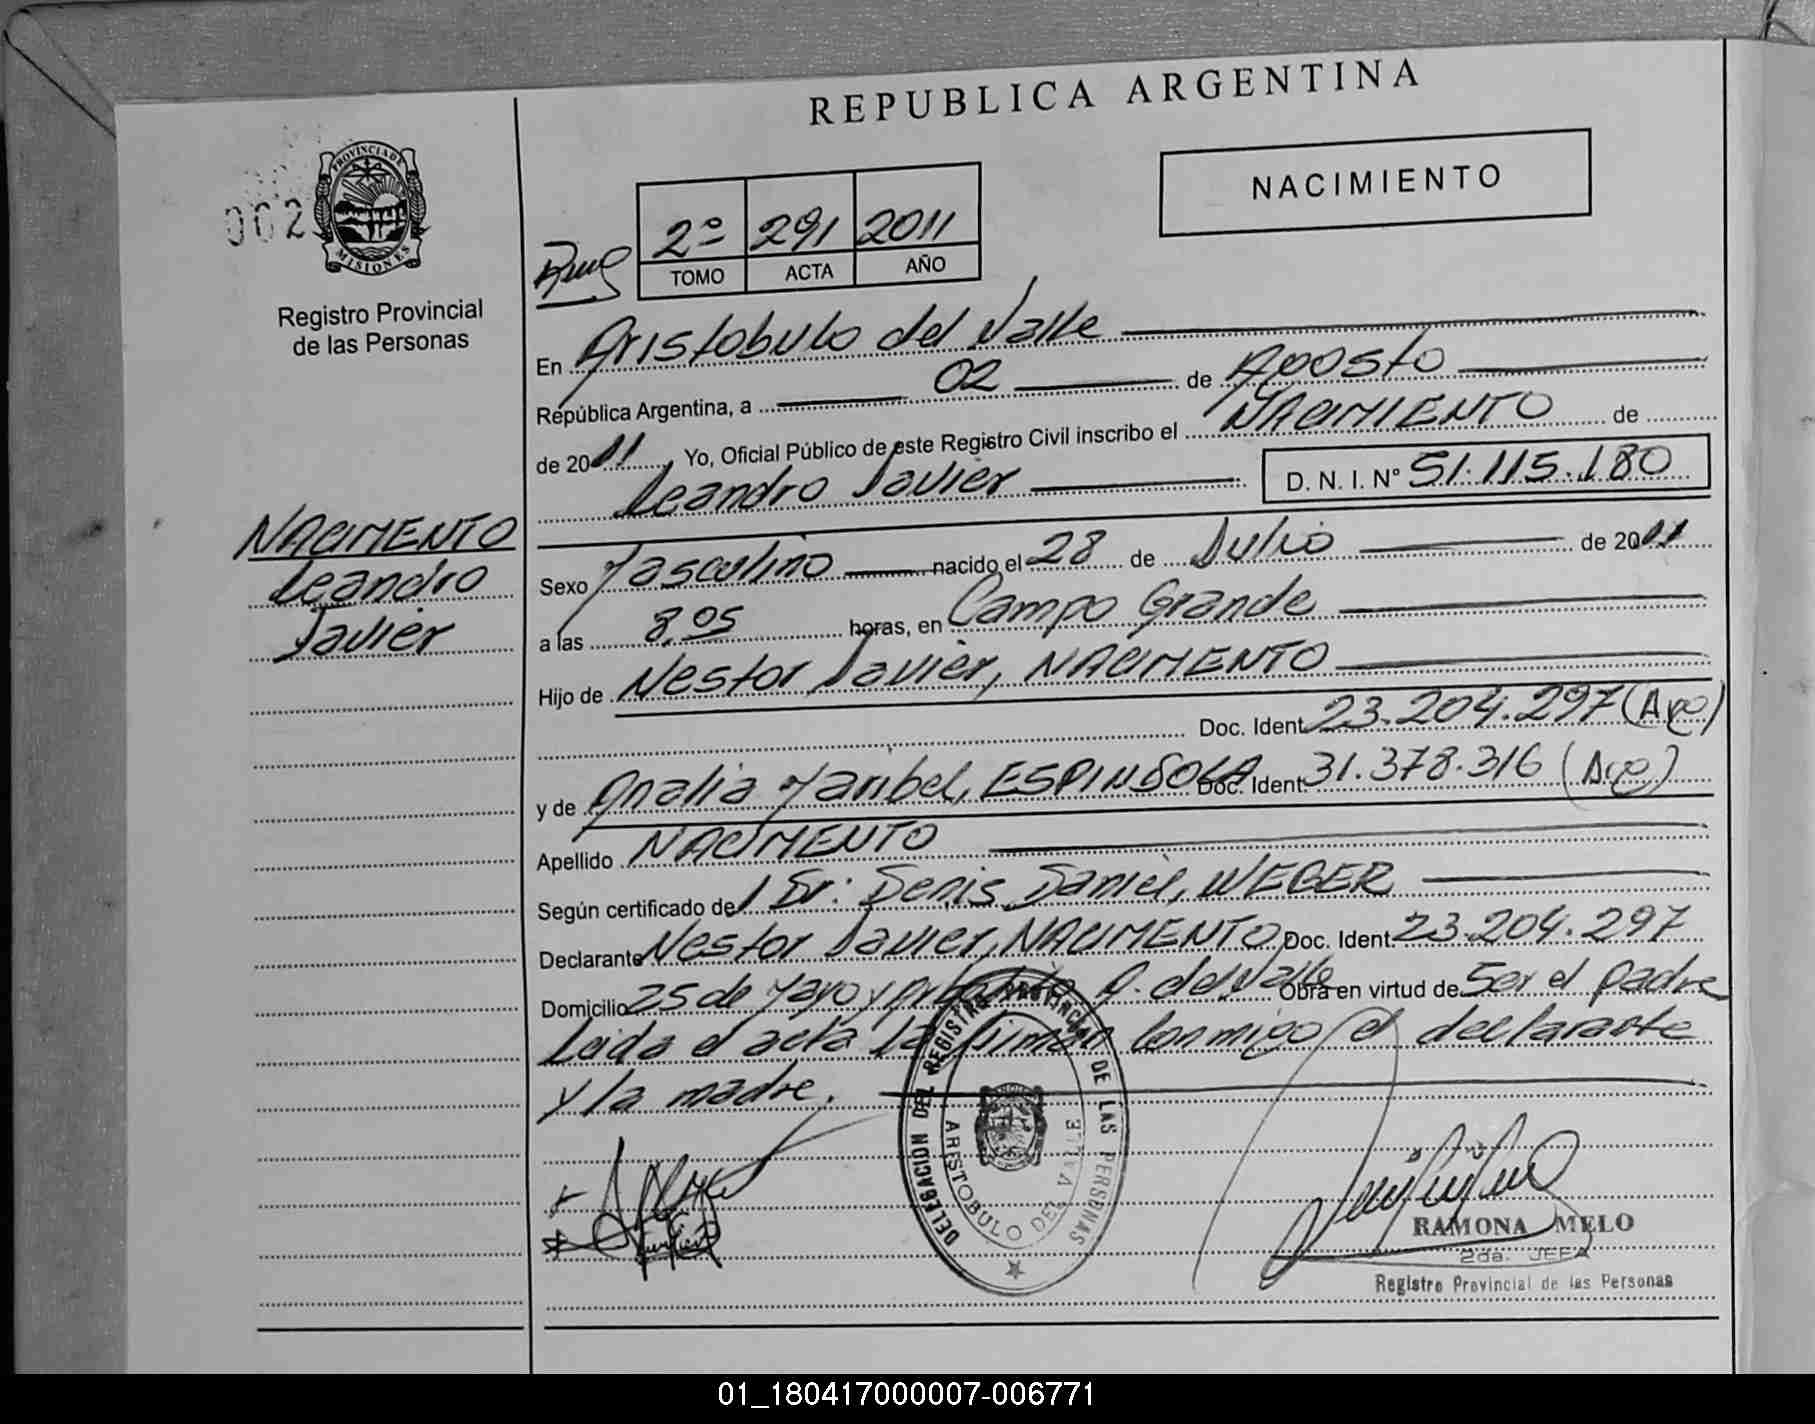 REPUBLICA ARGENTINA
NACIMIENTO
002
PROVINCIA DE
MISIONES
Registro Provincial
de las Personas
2º 291 2011
TOMO ACTA AÑO
En Aristobulo del Valle
República Argentina, a 02 de Agosto
de 2011, Yo, Oficial Público de este Registro Civil inscribo el NACIMIENTO de
Leandro Javier D. N. I. Nº 51.115.180
NACIMENTO
Leandro
Javier
Sexo Masculino nacido el 28 de Julio de 2011
a las 8,05 horas, en Campo Grande
Hijo de Nestor Javier, NACIMENTO
Doc. Ident. 23.204.297 (Arg)
y de Analia Maribel, ESPINDOLA Doc. Ident. 31.378.316 (Arg)
Apellido NACIMENTO
Según certificado del Dr: Denis Daniel, WEBER
Declarante Nestor Javier, NACIMENTO Doc. Ident. 23.204.297
Domicilio 25 de Mayo y A. del Valle Obra en virtud de Ser el padre
Leida el acta la firman conmigo el declarante
y la madre.
DELEGACION DEL REGISTRO PROVINCIAL DE LAS PERSONAS
ARISTOBULO DEL VALLE
RAMONA MELO
2da. JEFA
Registro Provincial de las Personas
01_180417000007-006771